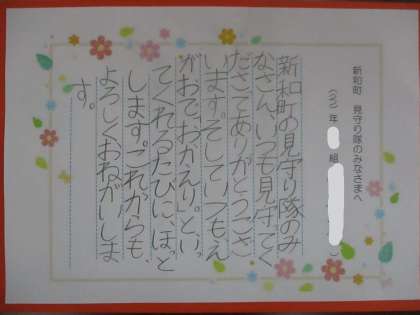 新和町 見守り隊のみなさまへ
年 組
新和町の見守り隊のみ
なさん、いつも見守てく
ださてありがとうござ
います。そしていつもえ
がおで、おかえり。とい
てくれるたびに、ほっと
します。これからも、
よろしくおねがいしま
す。